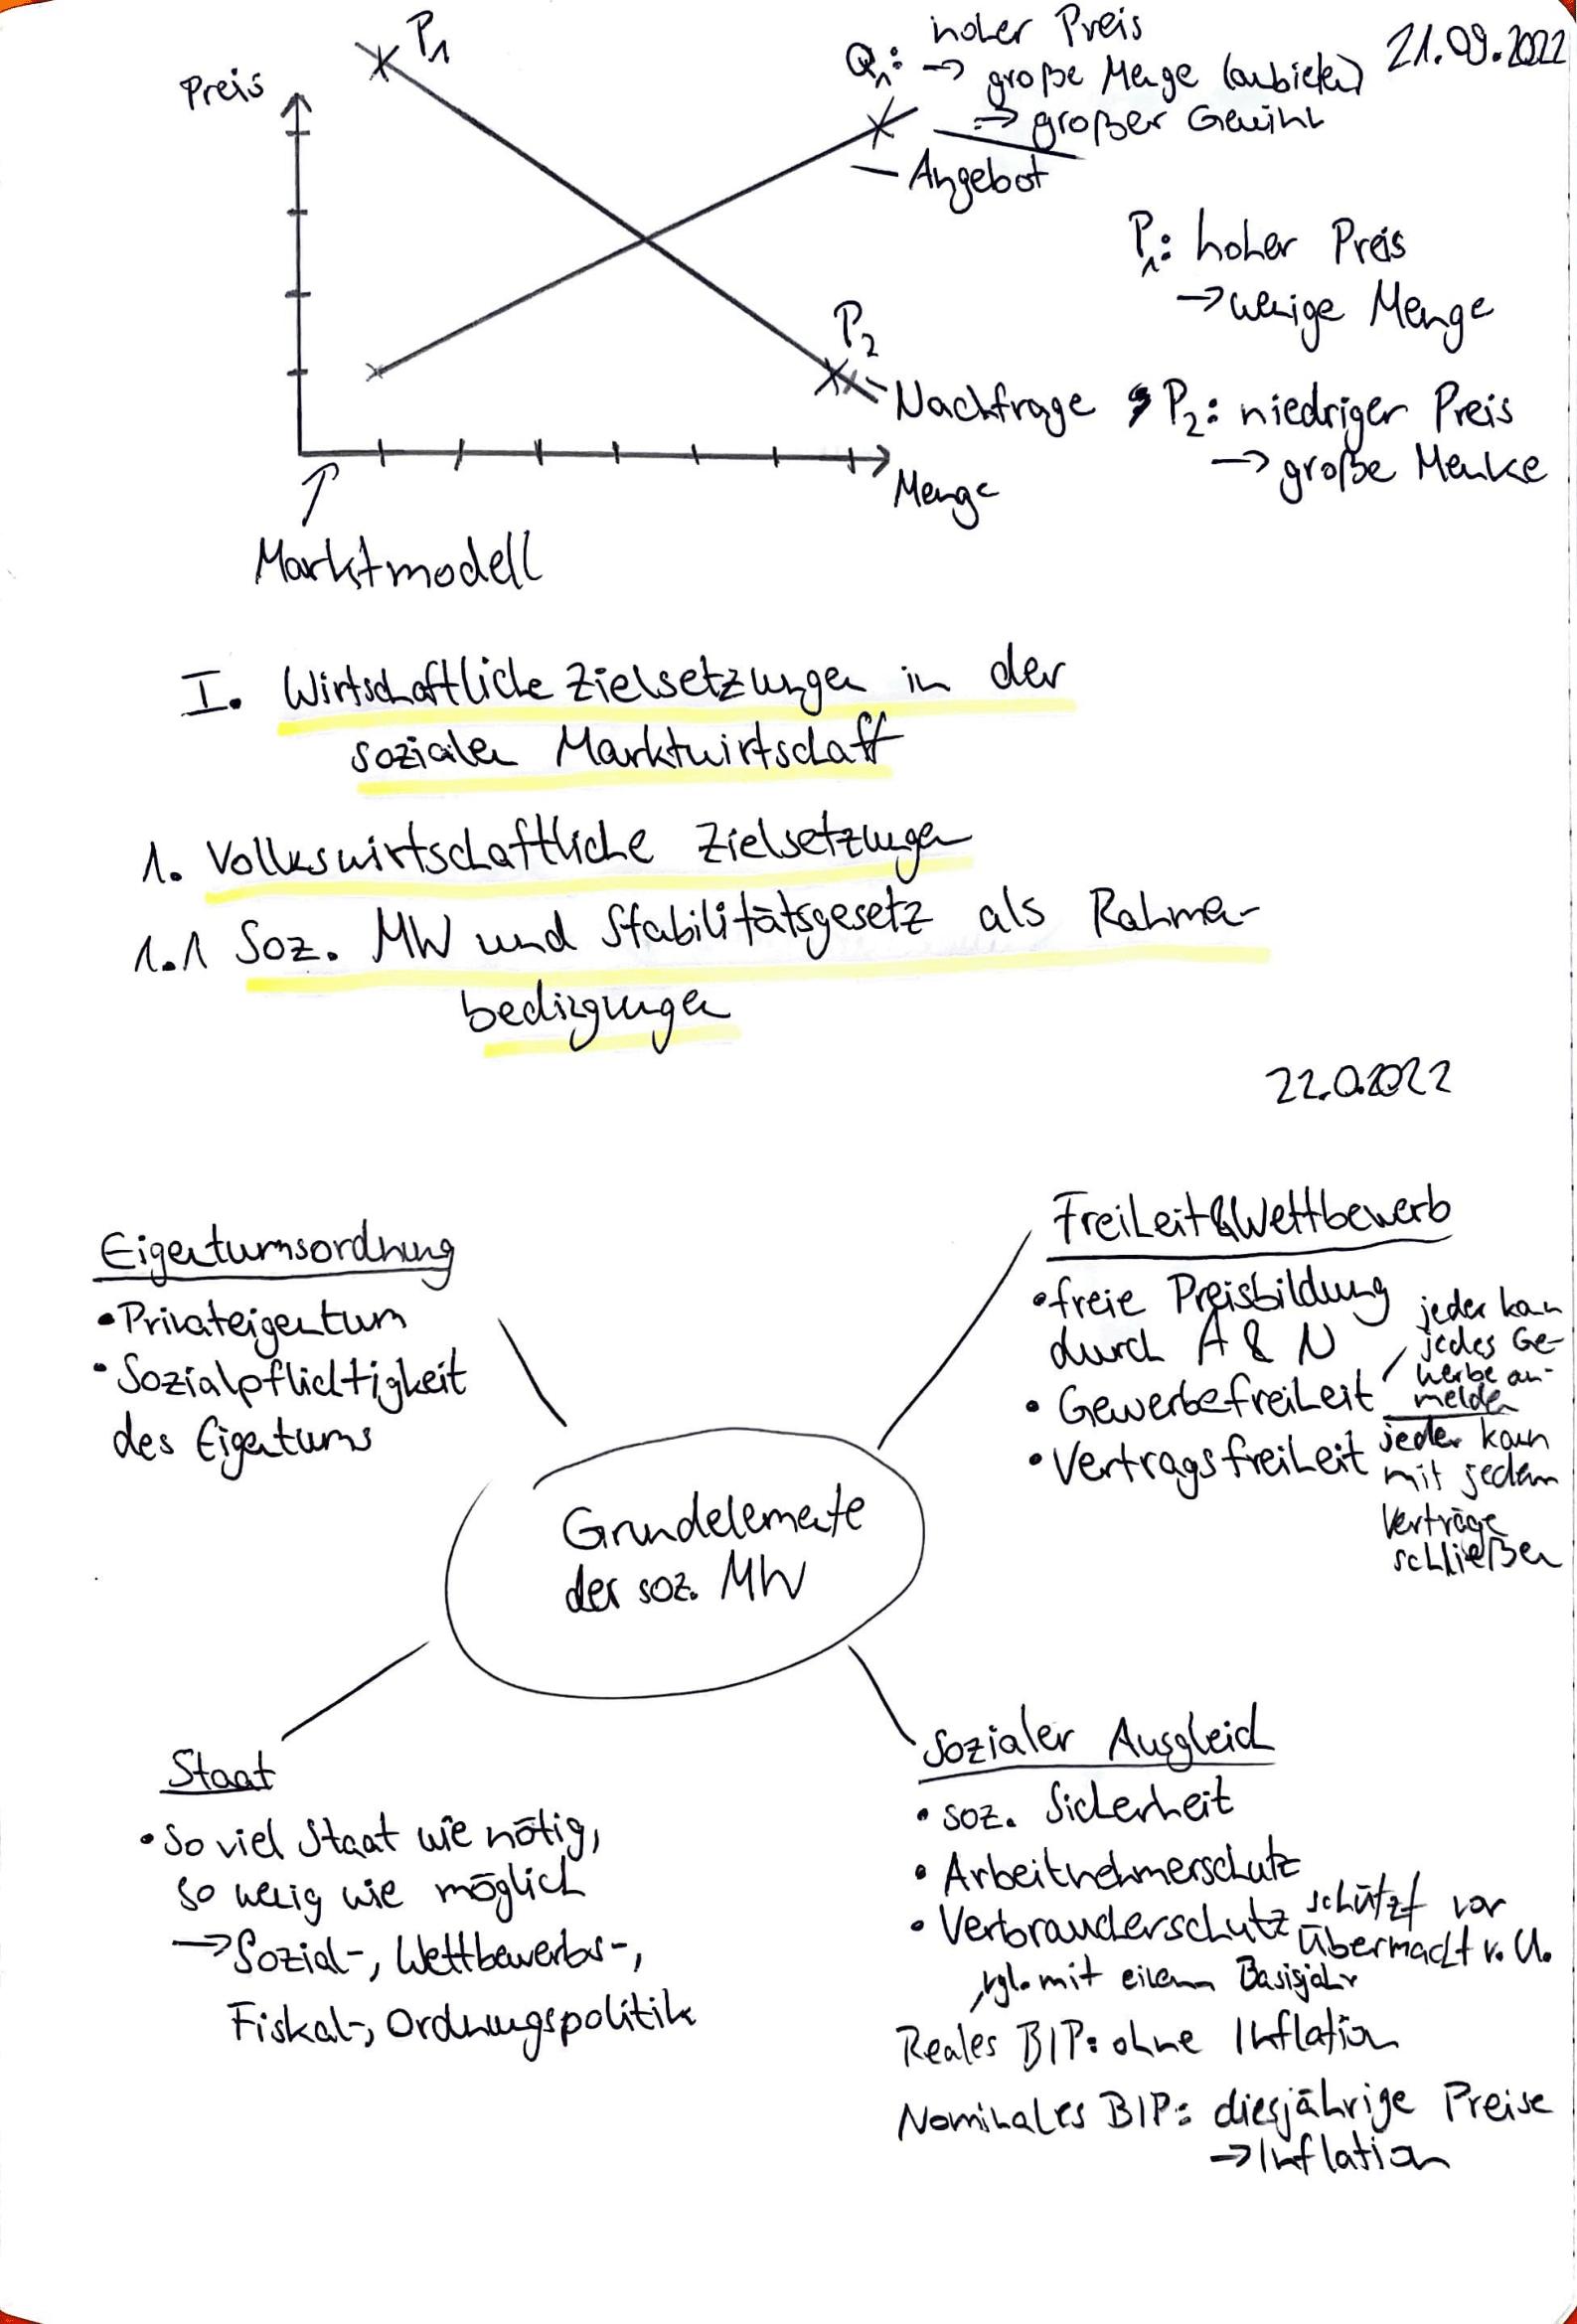 21.09.2022
P₁
Preis
Q₁: hoher Preis
→ große Menge (anbieten)
⇒ großer Gewinn
Angebot
P₁: hoher Preis
→ wenige Menge
P₂
Nachfrage
P₂: niedriger Preis
→ große Menke
Menge
Marktmodell
I. Wirtschaftliche Zielsetzungen in der
sozialen Marktwirtschaft
1. Volkswirtschaftliche Zielsetzungen
1.1 Soz. MW und Stabilitätsgesetz als Rahmen-
bedingungen
22.0.2022
Eigentumsordnung
• Privateigentum
• Sozialpflichtigkeit
des Eigentums
Freiheit & Wettbewerb
• freie Preisbildung
durch A & N
• Gewerbefreiheit
jeder kann
jedes Ge-
werbe an-
melden
• Vertragsfreiheit
jeder kann
mit jedem
Verträge
schließen
Grundelemente
der soz. MW
Staat
• So viel Staat wie nötig,
so wenig wie möglich
→ Sozial-, Wettbewerbs-,
Fiskal-, Ordnungspolitik
Sozialer Ausgleich
• soz. Sicherheit
• Arbeitnehmerschutz
• Verbraucherschutz schützt vor
Übermacht v. U.
vgl. mit einem Basisjahr
Reales BIP: ohne Inflation
Nominales BIP: diesjährige Preise
→ Inflation